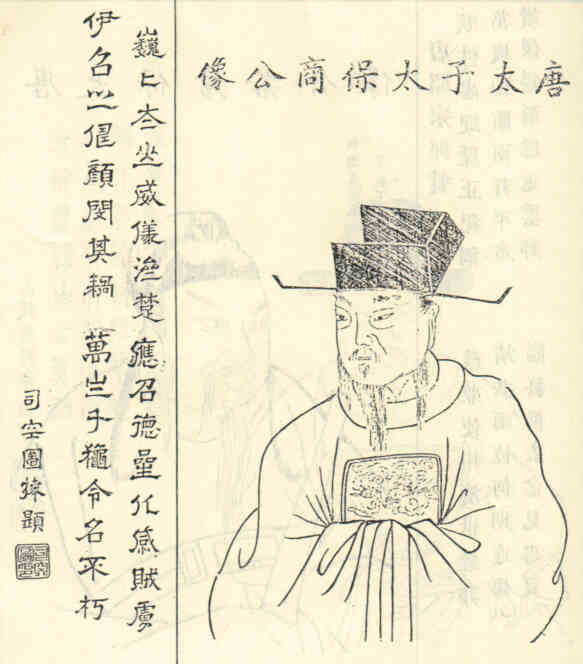 唐太子太保商公像
巍匕太山威儀濟楚應召德量化感賊虜
伊呂之儔顏閔其稱萬世千穐令名不朽
司空圖拜題